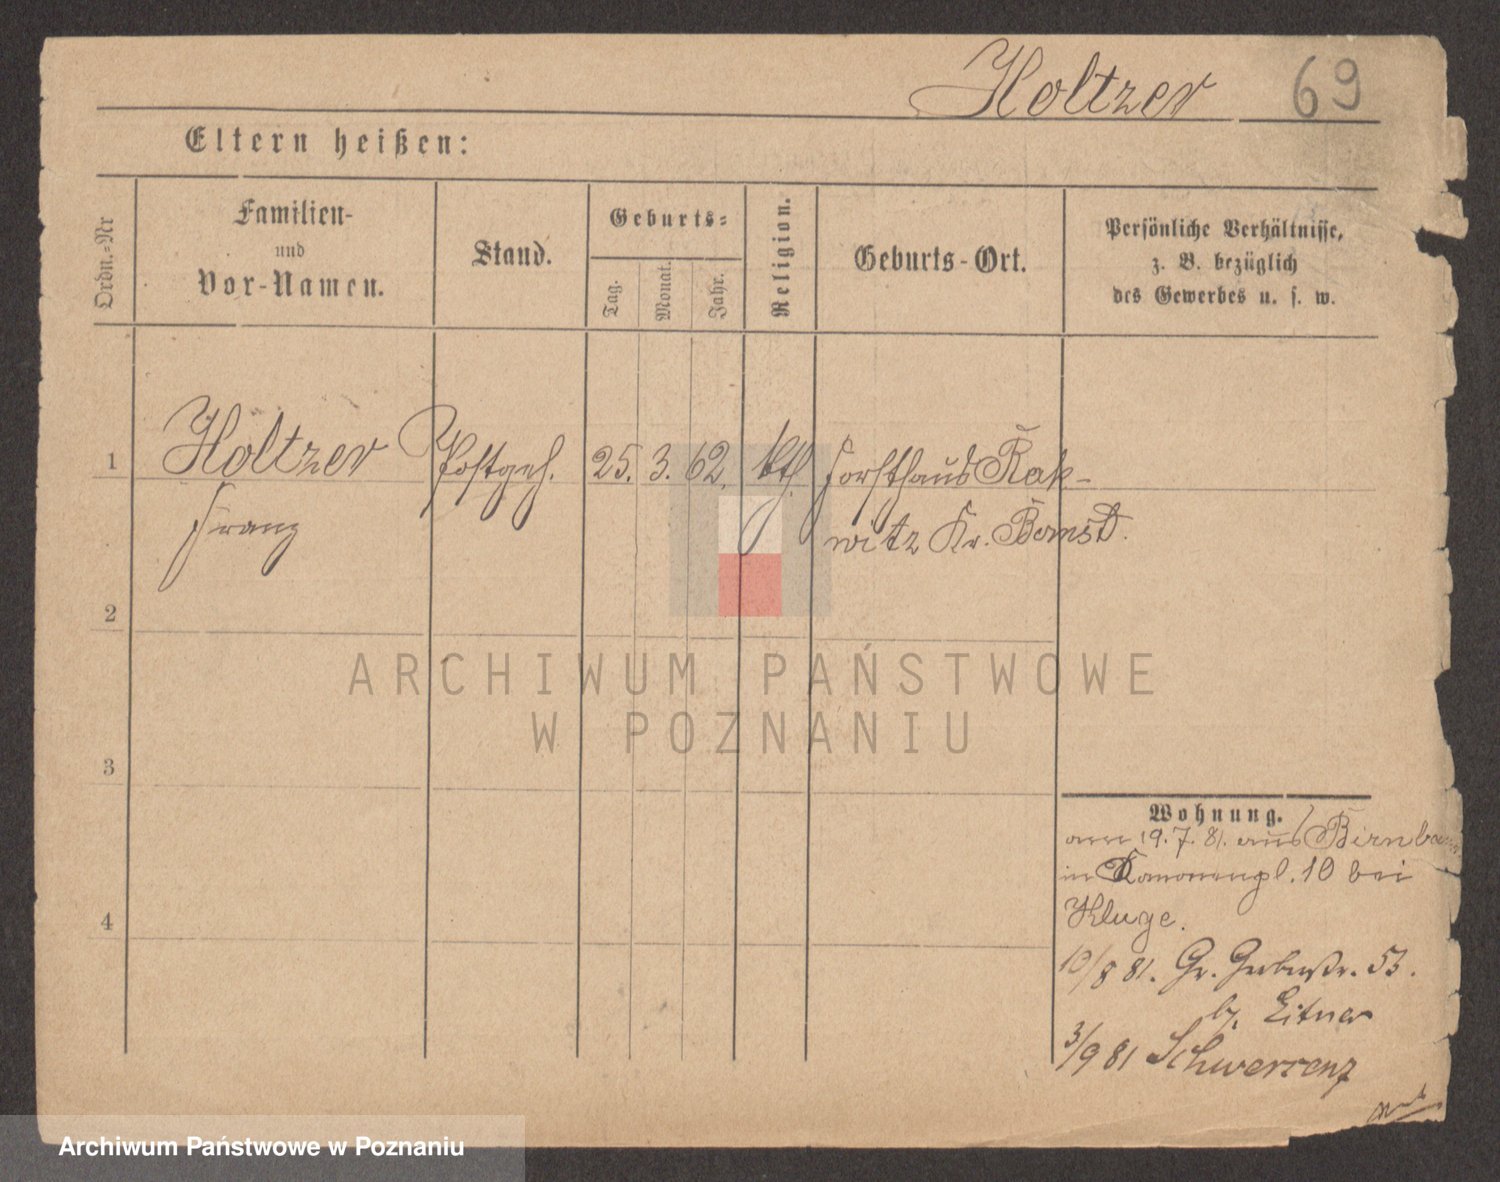 Holtzer 69
Eltern heißen:
Ordn.=Nr
Familien-
und
Vor-Namen.
Stand.
Geburts=
Tag.
Monat.
Jahr.
Religion.
Geburts-Ort.
Persönliche Verhältnisse,
z. B. bezüglich
des Gewerbes u. s. w.
1 Holtzer Postgeh. 25. 3. 62. kth. Forsthaus Rak-
Franz witz Kr. Bomst.
2
3
4
ARCHIWUM PAŃSTWOWE
W POZNANIU
Wohnung.
am 19. 7. 81. aus Birnbaum
in Kanonenpl. 10 bei
Kluge.
10/8 81. Gr. Gerberstr. 53.
b. Eitner
3/9 81 Schwersenz
Archiwum Państwowe w Poznaniu